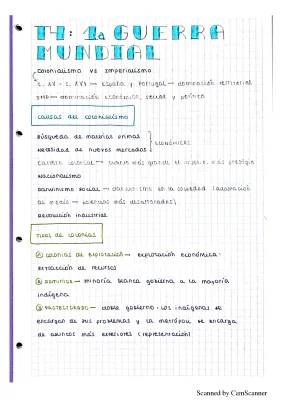 T4: 1a GUERRA
MUNDIAL
Colonialismo vs Imperialismo
s. XV - s. XVI → España y Portugal → dominación territorial
dominación económica, social y política
causas del colonialismo
Búsqueda de materias primas
Necesidad de nuevos mercados
económicas
carrera colonial → cuanto más grande el más prestigio
Nacionalismo
Darwinismo social → darwinismo en la sociedad (adaptación
al medio → potencias más desarrolladas)
Revolución industrial
Tipos de colonias
① colonias de explotación → explotación económica.
extracción de recursos
② Dominios → minoría blanca gobierna a la mayoría
indígena
③ Protectorado → doble gobierno. Los indígenas se
encargan de sus problemas y la metrópoli se encarga
de asuntos más exteriores (representación)
Scanned by CamScanner